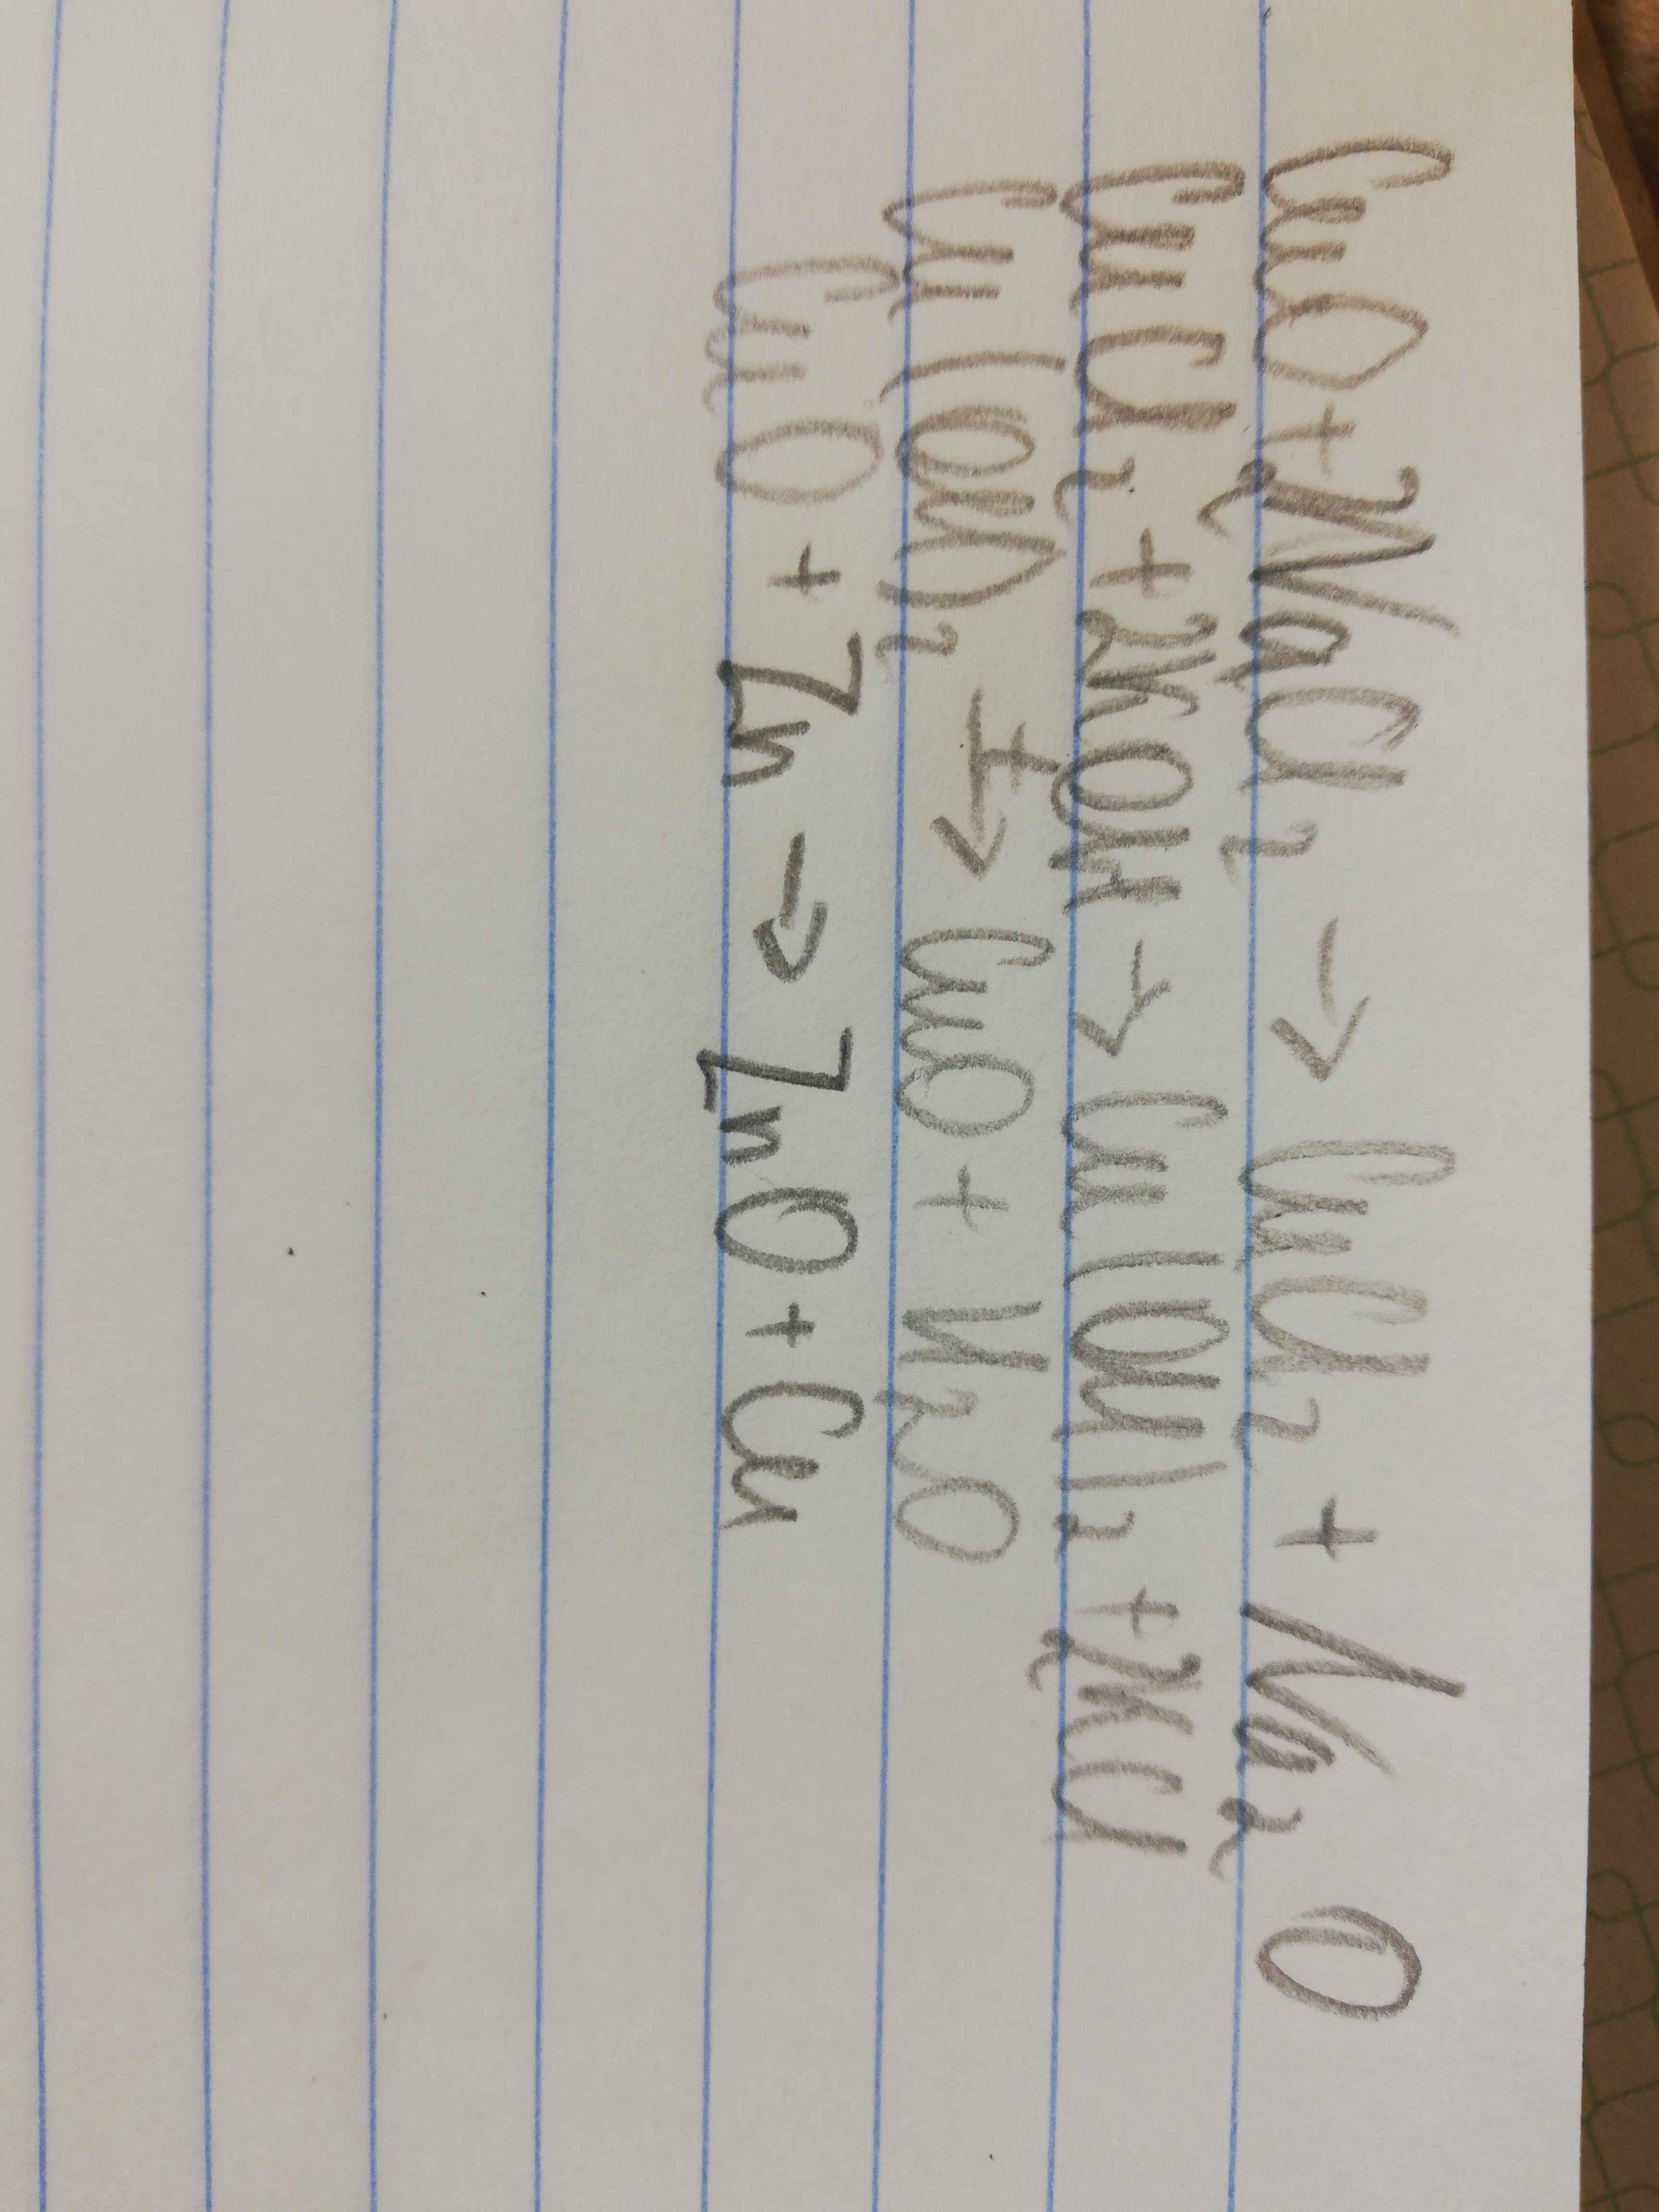 CuO + 2NaCl₂ → CuCl₂ + Na₂O
CuCl₂ + 2KOH → Cu(OH)₂ + 2KCl
Cu(OH)₂ t→ CuO + H₂O
CuO + Zn → ZnO + Cu